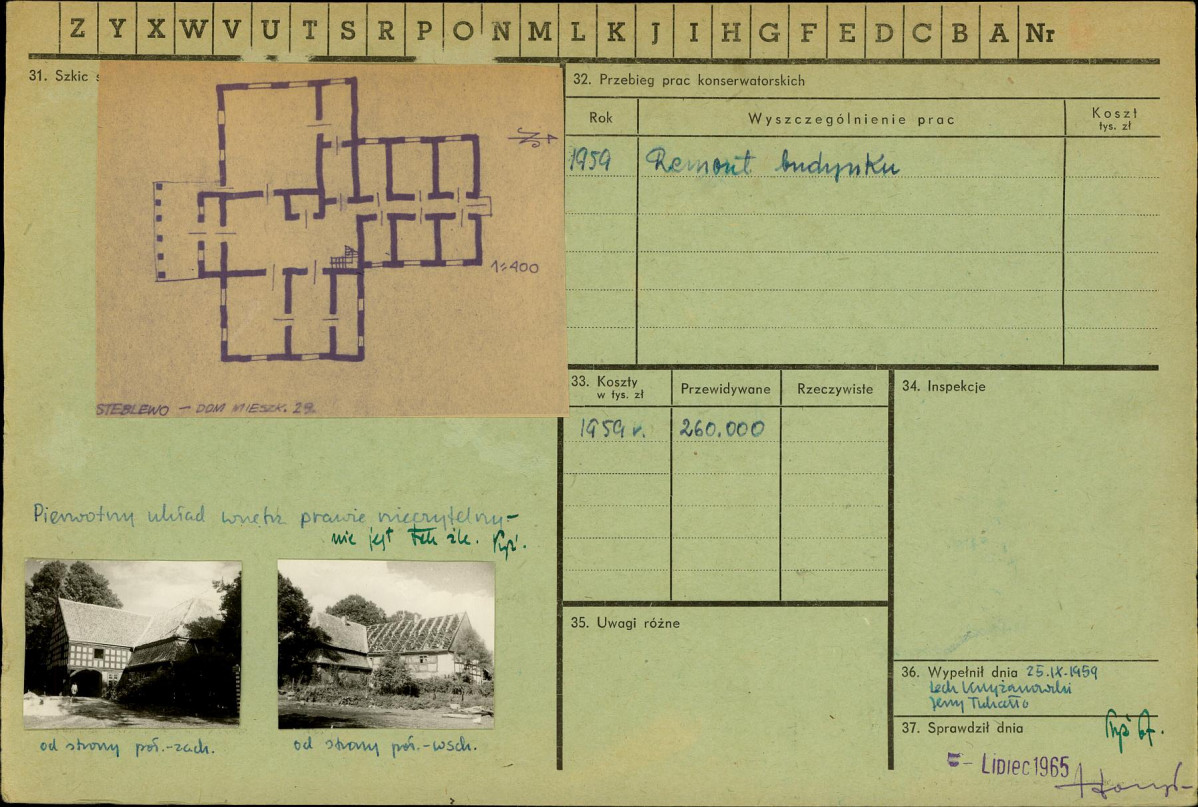 Z Y X W V U T S R P O N M L K J I H G F E D C B A Nr
31. Szkic
1:400
STEBLEWO — DOM MIESZK. 29.
Pierwotny układ wnętrz prawie nieczytelny —
nie jest tak źle.
od strony półn.-zach.
od strony półn.-wsch.
32. Przebieg prac konserwatorskich
Rok
Wyszczególnienie prac
Koszt
tys. zł
1959 Remont budynku
33. Koszty
w tys. zł
Przewidywane
Rzeczywiste
1959 r. 260.000
34. Inspekcje
35. Uwagi różne
36. Wypełnił dnia 25.IX.1959
Lech Krzyżanowski
Jerzy
37. Sprawdził dnia
5 - Lipiec 1965